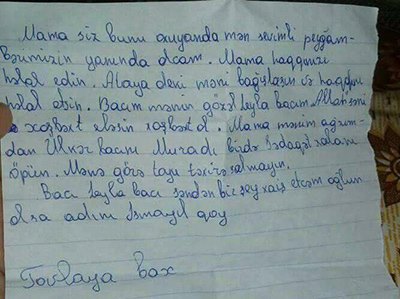 Mama siz bunu oxuyanda mən sevimli peyğəm-
bərimizin yanında olcam. Mama haqqınızı
həlal edin. Ataya deki məni bağışlasın və haqqını
həlal etsin. Bacım mənim gözəl leyla bacım Allah səni
xoşbəxt eləsin xoşbəxt ol. Mama mənim
dan Ülkər bacımı Muradı birdə Sədaqət xalanı
öpün. Mənə görə toyu təxirə salmayın.
Bacı leyla bacı səndən bir şey xaiş etcəm oğlun
olsa adını Ismayıl qoy
bax